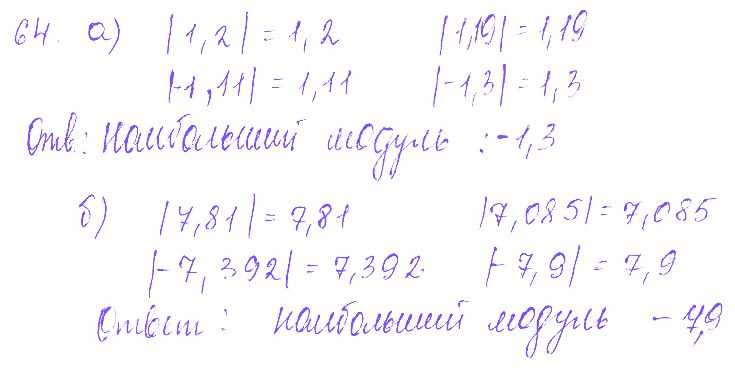 64. а) |1,2| = 1,2 |1,19| = 1,19
|-1,11| = 1,11 |-1,3| = 1,3
Отв: наибольший модуль : -1,3
б) |7,81| = 7,81 |7,085| = 7,085
|-7,392| = 7,392. |-7,9| = 7,9
Ответ: наибольший модуль - 7,9